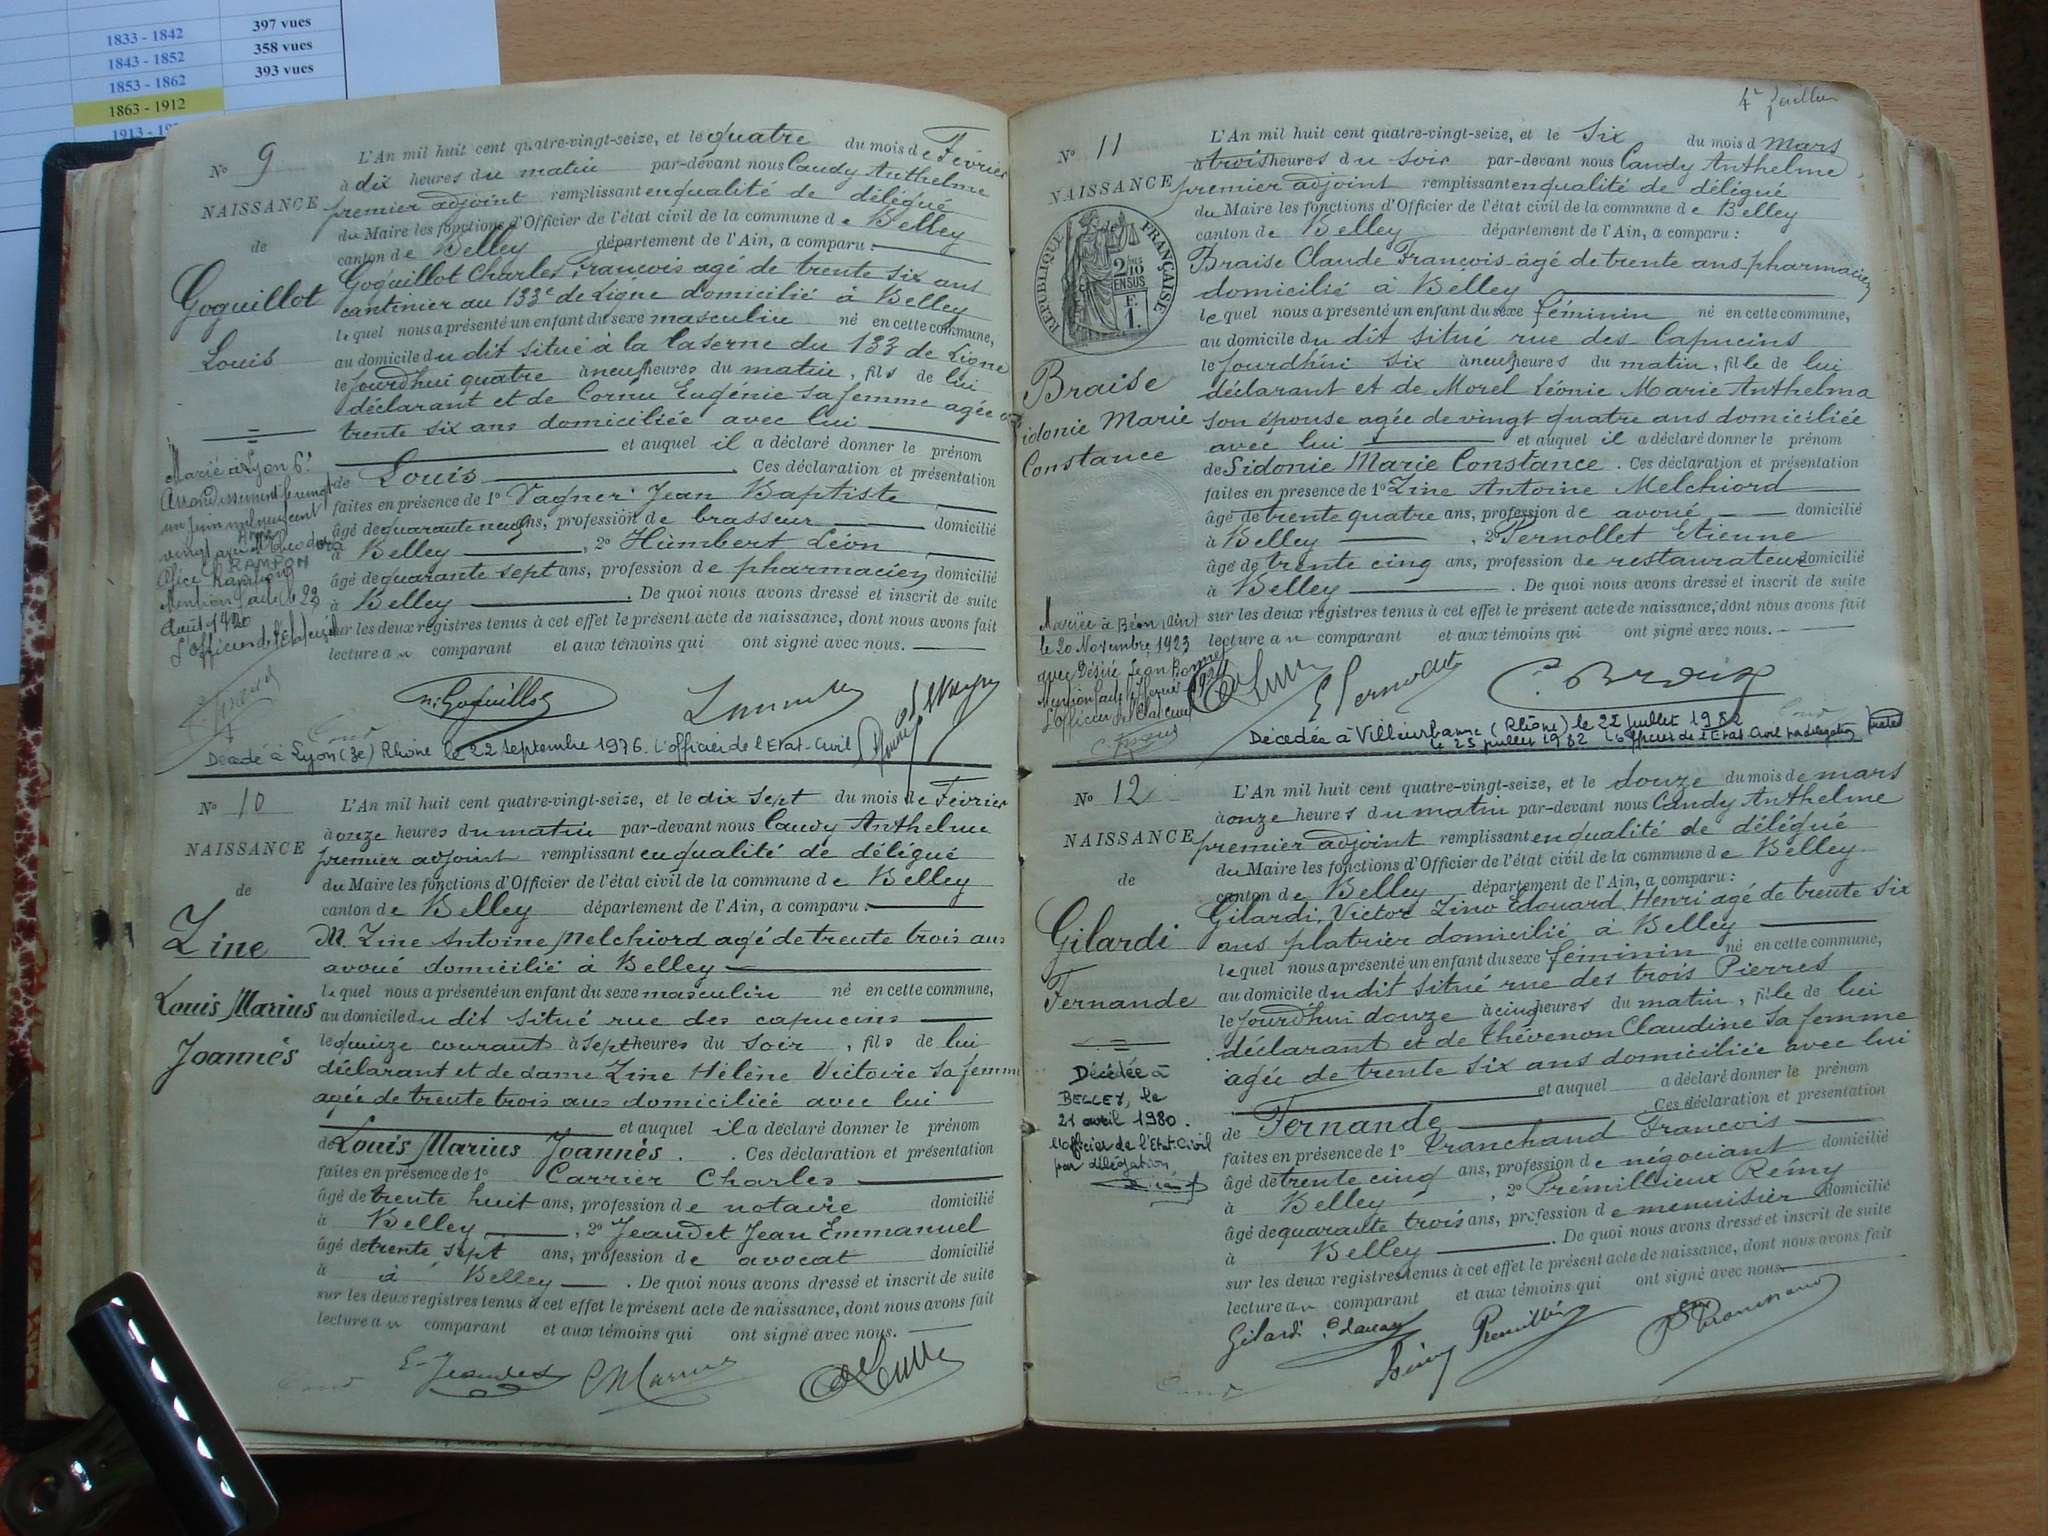 397 vues
1833 - 1842
358 vues
1843 - 1852
393 vues
1853 - 1862
1863 - 1912
1913 -
No 9
NAISSANCE
de
Goguillot
Louis
L'An mil huit cent quatre-vingt-seize, et le quatre du mois de Février
à dix heures du matin par-devant nous Caudy Anthelme
premier adjoint remplissant en qualité de délégué
du Maire les fonctions d'Officier de l'état civil de la commune de Belley
canton de Belley département de l'Ain, a comparu :
Goguillot Charles François agé de trente six ans
cantinier au 133e de Ligne domicilié à Belley
lequel nous a présenté un enfant du sexe masculin né en cette commune,
au domicile du dit situé à la Caserne du 133 de Ligne
le jourdhui quatre à neuf heures du matin, fils de lui
déclarant et de Cornu Eugénie sa femme agée de
trente six ans domiciliée avec lui
et auquel il a déclaré donner le prénom
de Louis. Ces déclaration et présentation
faites en présence de 1o Vagner Jean Baptiste
âgé de quarante neuf ans, profession de brasseur domicilié
à Belley, 2o Humbert Léon
âgé de quarante sept ans, profession de pharmacien domicilié
à Belley. De quoi nous avons dressé et inscrit de suite
sur les deux registres tenus à cet effet le présent acte de naissance, dont nous avons fait
lecture au comparant et aux témoins qui ont signé avec nous.
Marié à Lyon 6e
Arrondissement le vingt
un juin mil neuf cent
vingt avec
RAMPON
Alice
Mention faite le 23
Août 1920
L'officier de l'Etat civil
Goguillot
Décédé à Lyon (3e) Rhône le 22 septembre 1976. L'officier de l'Etat-Civil
No 10
NAISSANCE
de
Zine
Louis Marius
Joannès
L'An mil huit cent quatre-vingt-seize, et le dix sept du mois de Février
à onze heures du matin par-devant nous Caudy Anthelme
premier adjoint remplissant en qualité de délégué
du Maire les fonctions d'Officier de l'état civil de la commune de Belley
canton de Belley département de l'Ain, a comparu :
M. Zine Antoine Melchiord agé de trente trois ans
avoué domicilié à Belley
lequel nous a présenté un enfant du sexe masculin né en cette commune,
au domicile du dit situé rue des capucins
le quinze courant à sept heures du soir, fils de lui
déclarant et de dame Zine Hélène Victoire sa femme
agée de trente trois ans domiciliée avec lui
et auquel il a déclaré donner le prénom
de Louis Marius Joannès. Ces déclaration et présentation
faites en présence de 1o Carrier Charles
âgé de trente huit ans, profession de notaire domicilié
à Belley, 2o Jeaudet Jean Emmanuel
âgé de trente sept ans, profession de avocat domicilié
à à Belley. De quoi nous avons dressé et inscrit de suite
sur les deux registres tenus à cet effet le présent acte de naissance, dont nous avons fait
lecture au comparant et aux témoins qui ont signé avec nous.
4e feuillet
No 11
NAISSANCE
de
RÉPUBLIQUE FRANÇAISE
2/10 EN SUS
F.
1.
Braise
Sidonie Marie
Constance
L'An mil huit cent quatre-vingt-seize, et le six du mois d Mars
à trois heures du soir par-devant nous Caudy Anthelme
premier adjoint remplissant en qualité de délégué
du Maire les fonctions d'Officier de l'état civil de la commune de Belley
canton de Belley département de l'Ain, a comparu :
Braise Claude François âgé de trente ans pharmacien
domicilié à Belley
lequel nous a présenté un enfant du sexe féminin né en cette commune,
au domicile du dit situé rue des Capucins
le jourdhui six à neuf heures du matin, fille de lui
déclarant et de Morel Léonie Marie Anthelma
son épouse agée de vingt quatre ans domiciliée
avec lui et auquel il a déclaré donner le prénom
de Sidonie Marie Constance. Ces déclaration et présentation
faites en présence de 1o Zine Antoine Melchiord
âgé de trente quatre ans, profession de avoué domicilié
à Belley, 2o Pernollet Etienne
âgé de trente cinq ans, profession de restaurateur domicilié
à Belley. De quoi nous avons dressé et inscrit de suite
sur les deux registres tenus à cet effet le présent acte de naissance, dont nous avons fait
lecture au comparant et aux témoins qui ont signé avec nous.
Mariée à Béon (Ain)
le 20 Novembre 1923
avec Désiré Léon
L'officier de l'état civil
Décédée à Villeurbanne (Rhône) le 22 juillet 1982
le 25 juillet 1982 L'officier de l'Etat-Civil par délégation
No 12
NAISSANCE
de
Gilardi
Fernande
L'An mil huit cent quatre-vingt-seize, et le douze du mois de mars
à onze heures du matin par-devant nous Caudy Anthelme
premier adjoint remplissant en qualité de délégué
du Maire les fonctions d'Officier de l'état civil de la commune de Belley
canton de Belley département de l'Ain, a comparu :
Gilardi Victor Zino Edouard Henri agé de trente six
ans platrier domicilié à Belley
lequel nous a présenté un enfant du sexe féminin né en cette commune,
au domicile du dit situé rue des trois Pierres
le jourdhui douze à cinq heures du matin, fille de lui
déclarant et de Thévenon Claudine sa femme
agée de trente six ans domiciliée avec lui
et auquel a déclaré donner le prénom
de Fernande Ces déclaration et présentation
faites en présence de 1o Tranchand François
âgé de trente cinq ans, profession de négociant domicilié
à Belley, 2o Prémillieux Rémy
âgé de quarante trois ans, profession de menuisier domicilié
à Belley. De quoi nous avons dressé et inscrit de suite
sur les deux registres tenus à cet effet le présent acte de naissance, dont nous avons fait
lecture au comparant et aux témoins qui ont signé avec nous.
Décédée à
BELLEY, le
21 avril 1980.
L'officier de l'Etat-Civil
par délégation
Gilardi